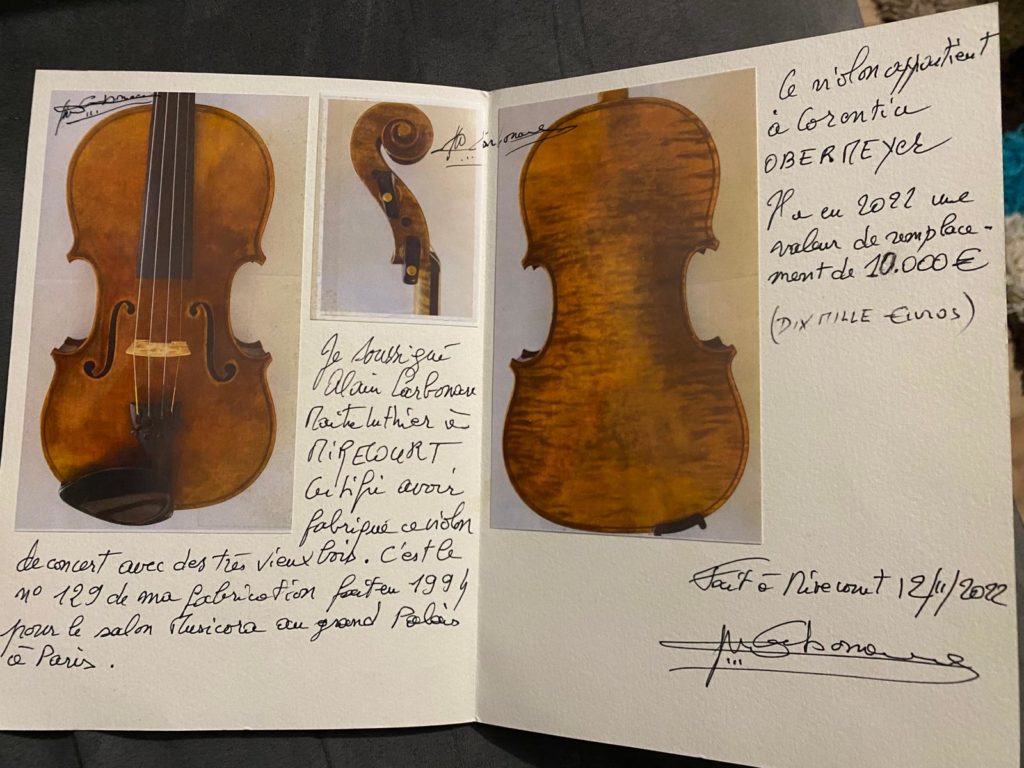 Je soussigné
Alain Carbonare
Maître luthier à
MIRECOURT
Certifie avoir
fabriqué ce violon
de concert avec des très vieux bois. C'est le
n° 129 de ma fabrication fait en 1994
pour le salon Musicora au grand Palais
à Paris.
Ce violon appartient
à Corentin
OBERMEYER
Il a en 2022 une
valeur de remplace-
ment de 10.000 €
(DIX MILLE Euros)
Fait à Mirecourt 12/11/2022